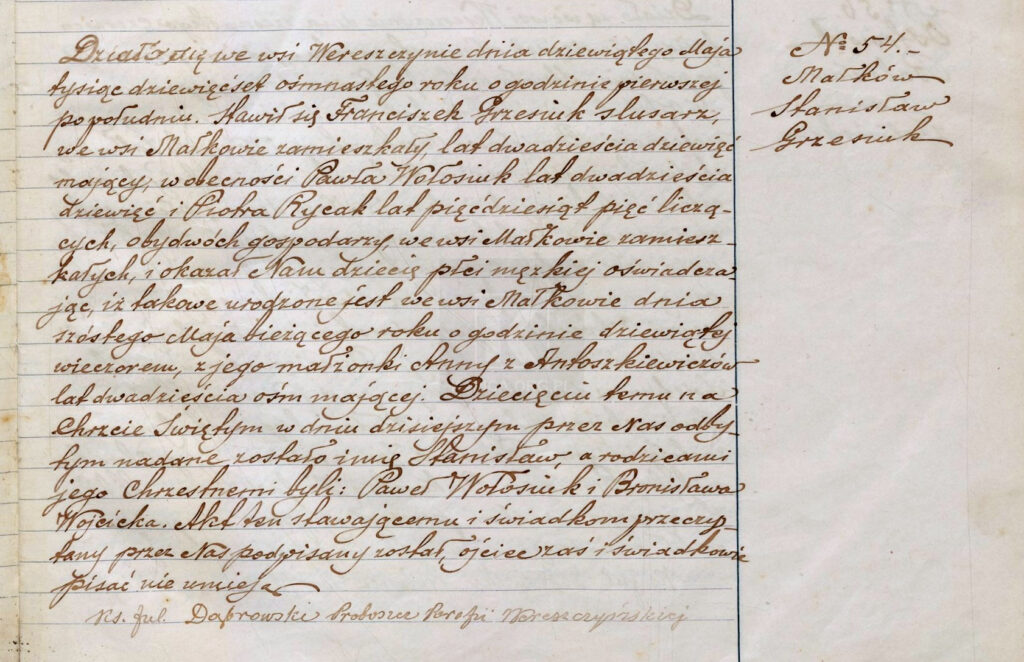 Działo się we wsi Wereszczynie dnia dziewiątego Maja
tysiąc dziewięćset ośmnastego roku o godzinie pierwszej
popołudniu. Stawił się Franciszek Grzesiuk slusarz,
we wsi Małkowie zamieszkały, lat dwadzieścia dziewięć
mający, w obecności Pawła Wołosiuk lat dwadzieścia
dziewięć i Piotra Rycak lat pięćdziesiąt pięć liczą-
cych, obydwóch gospodarzy, we wsi Małkowie zamiesz-
kałych, i okazał Nam dziecię płci męzkiej oświadcza
jąc, iż takowe urodzone jest we wsi Małkowie dnia
szóstego Maja bieżącego roku o godzinie dziewiątej
wieczorem, z jego małżonki Anny z Antoszkiewiczów
lat dwadzieścia ośm mającej. Dziecięciu temu na
Chrzcie Świętym w dniu dzisiejszym przez Nas odby-
tym nadane zostało imię Stanisław, a rodzicami
jego Chrzestnemi byli: Paweł Wołosiuk i Bronisława
Wojcicka. Akt ten stawającemu i świadkom przeczy-
tany przez Nas podpisany został, ojciec zaś i świadkowie
pisać nie umieją
Ks. Jul. Dąbrowski Proboszcz Parafii Wereszczyńskiej
№ 54.-
Małków
Stanisław
Grzesiuk